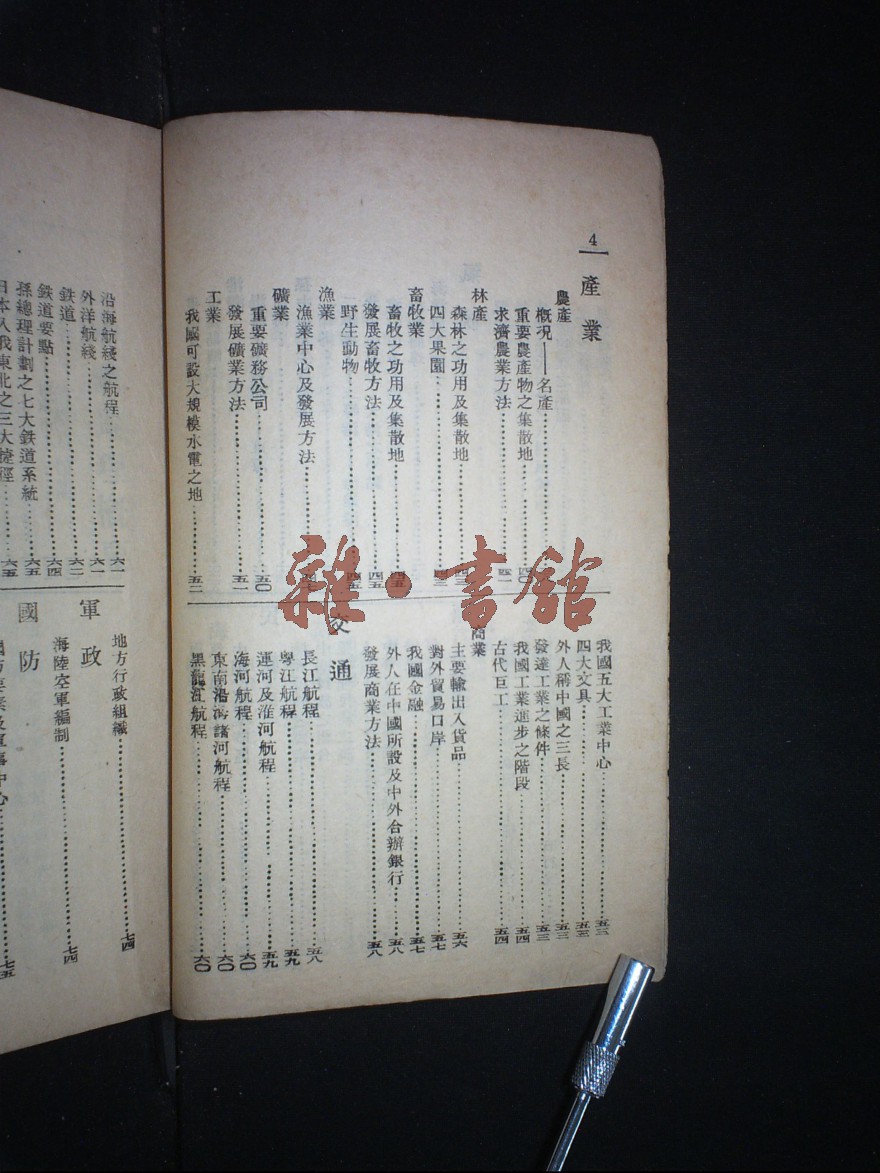 4
產業
農產
概況——名產
重要農產物之集散地 四〇
求濟農業方法
林產
森林之功用及集散地
四大果園
畜牧業
畜牧之功用及集散地 四五
發展畜牧方法 四五
野生動物
漁業
漁業中心及發展方法
礦業
重要礦務公司 五〇
發展礦業方法 五一
工業
我國可設大規模水電之地 五二
我國五大工業中心 五三
四大文具 五三
外人稱中國之三長 五三
發達工業之條件 五三
我國工業進步之階段 五四
古代巨工 五四
商業
主要輸出入貨品 五六
對外貿易口岸 五七
我國金融 五七
外人在中國所設及中外合辦銀行 五八
發展商業方法 五八
交通
長江航程 五八
粵江航程 五九
運河及淮河航程 五九
海河航程 六〇
東南沿海諸河航程 六〇
黑龍江航程 六〇
沿海航綫之航程 六一
外洋航綫 六一
鉄道 六二
鉄道要點 六四
孫總理計劃之七大鉄道系統 六五
日本入我東北之三大捷徑 六五
地方行政組織 七四
軍政
海陸空軍編制 七四
國防
七五
雜·書館